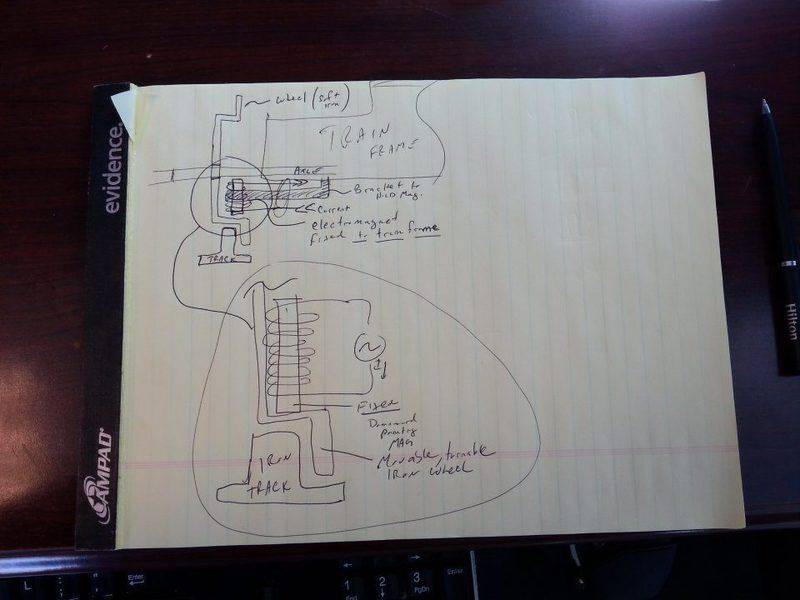 evidence.
AMPAD®
wheel (soft
iron)
TRAIN
FRAME
AXLE
Bracket to
Hold Mag.
Current
electromagnet
fixed to train frame
TRACK
Fixed
Downward
Pointing
MAG
Movable, turnable
IRON wheel
IRON
TRACK
Hilton
L
Enter
1
2
3
PgDn
Enter